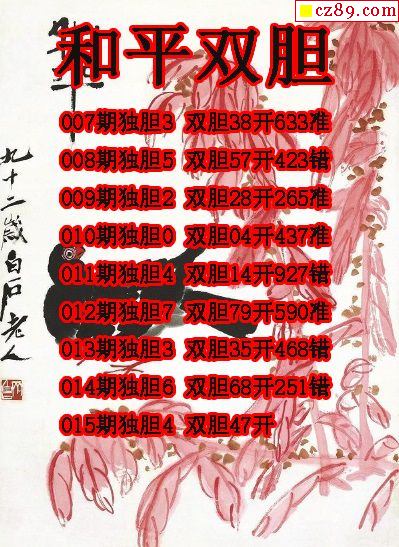 cz89.com
和平双胆
007期独胆3 双胆38开633准
008期独胆5 双胆57开423错
009期独胆2 双胆28开265准
010期独胆0 双胆04开437准
011期独胆4 双胆14开927错
012期独胆7 双胆79开590准
013期独胆3 双胆35开468错
014期独胆6 双胆68开251错
015期独胆4 双胆47开
九十二歲白石老人